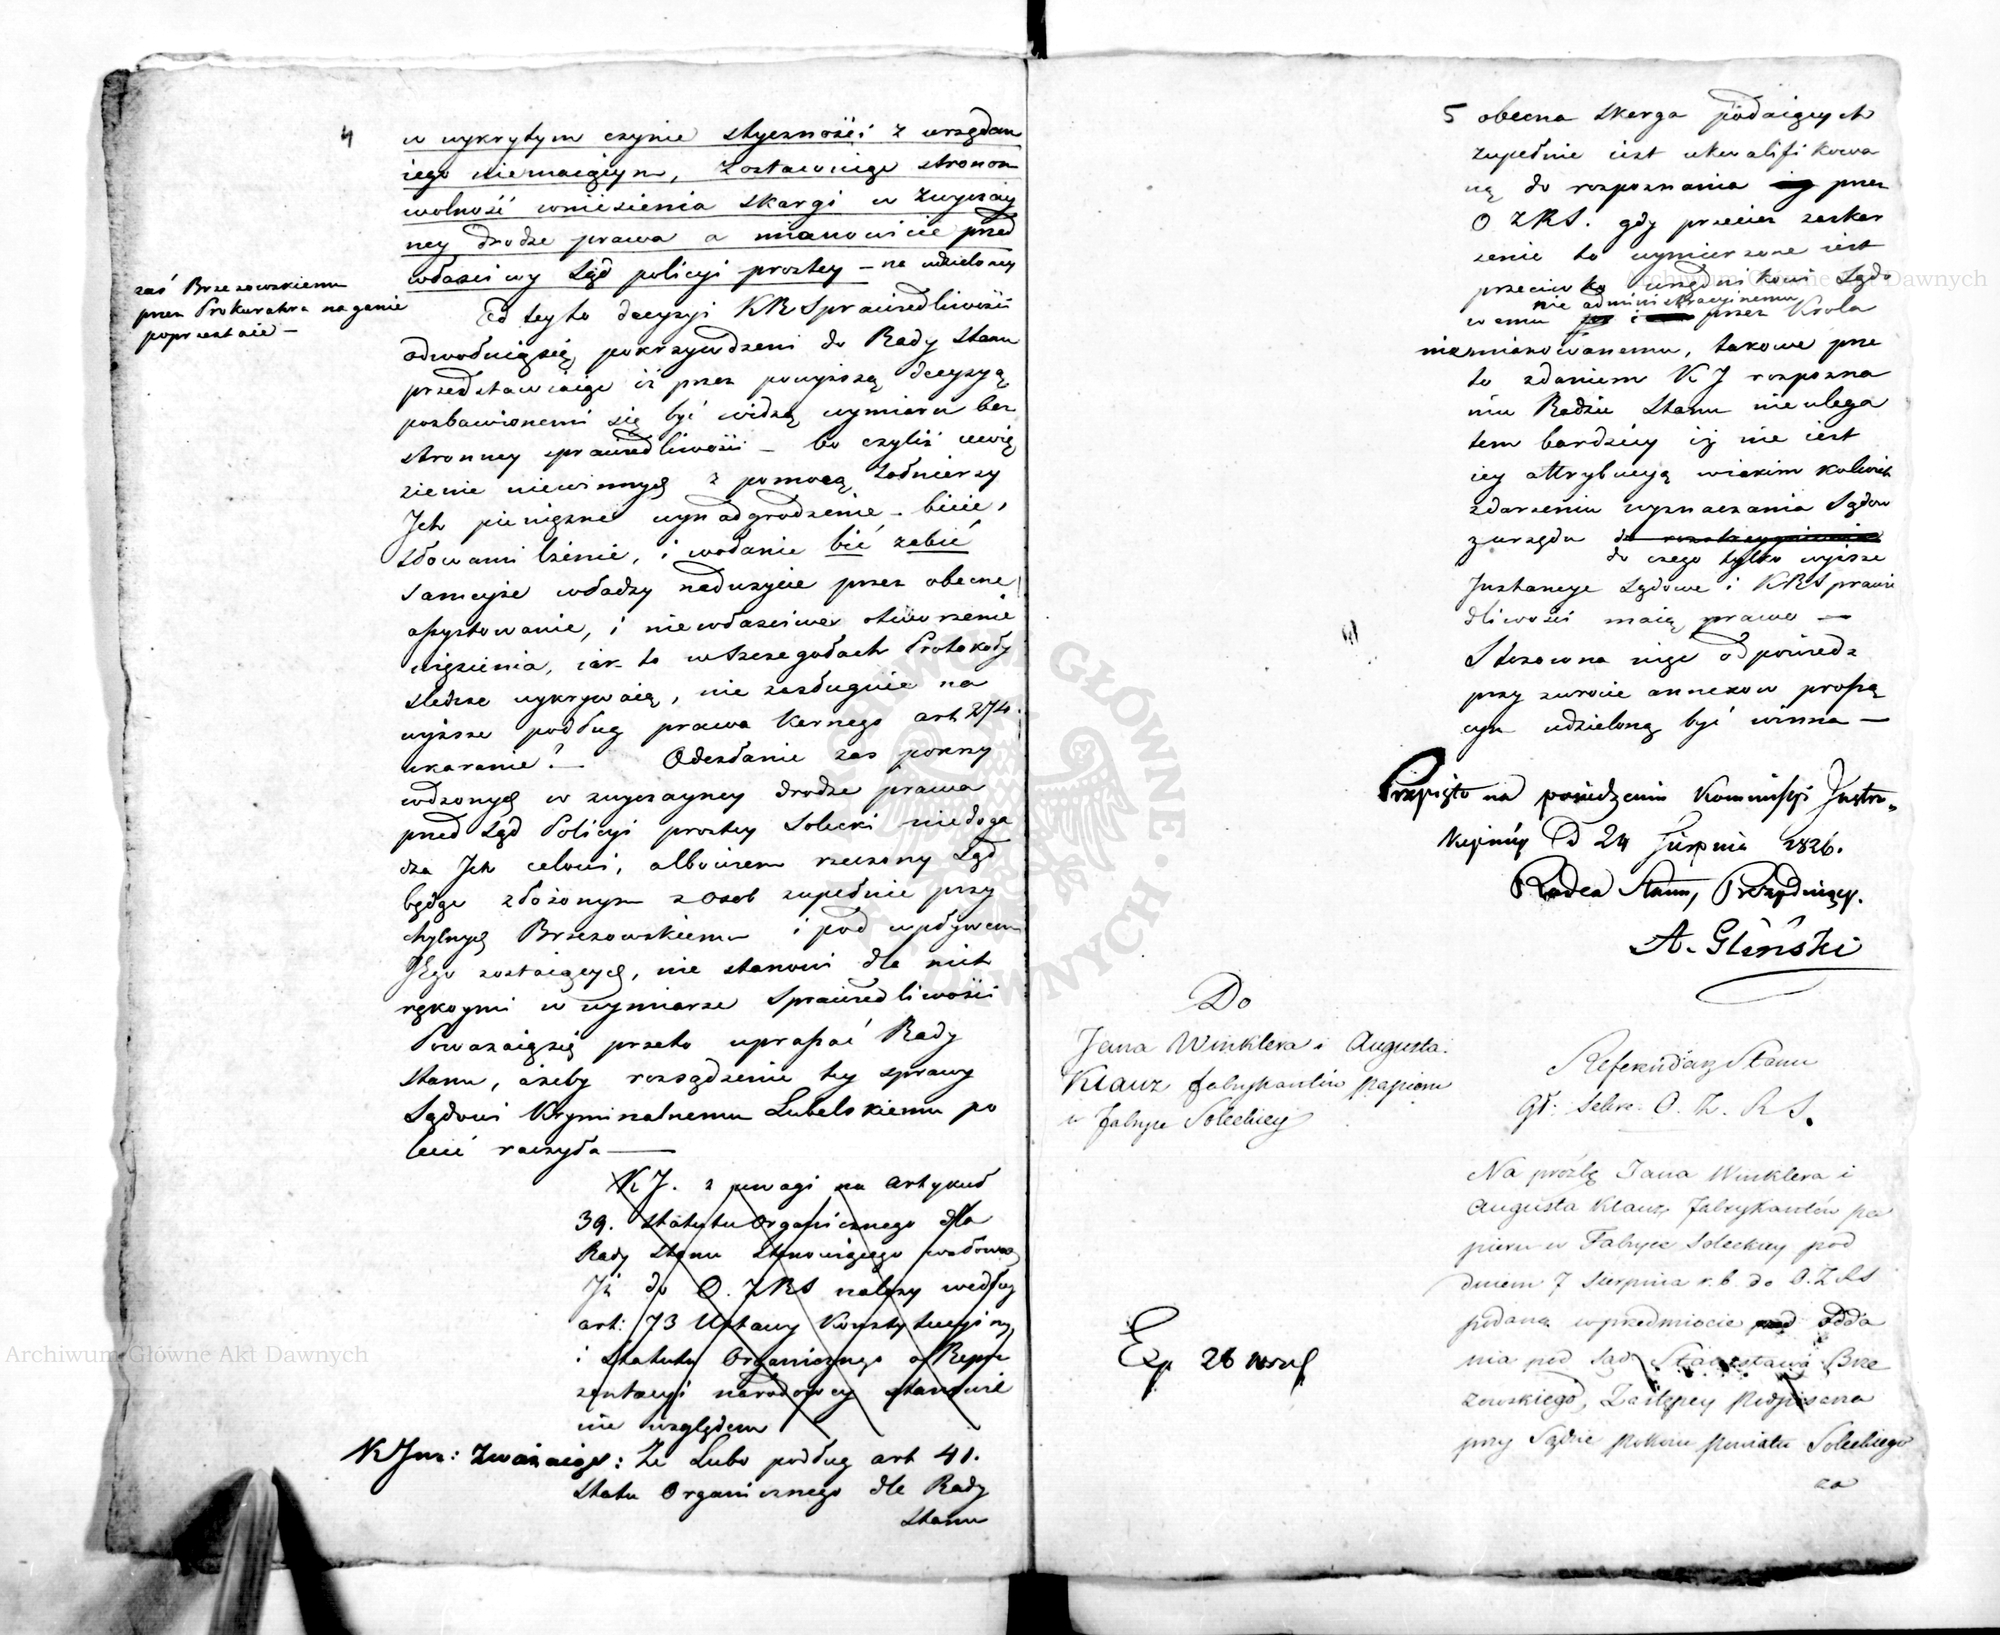 4
w wykrytym czynie styczności z urzędem
iego niemaiącym, zostawuiąc stronom
wolność wniesienia skargi w zwyczay
ney drodze prawa a mianowicie przed
właściwy Sąd policyi prostey – na udzieloney
zaś Brzezowskiemu
przez Prokuratra naganie
poprzestaie –
Od tey to decyzyi KRSprawiedliwości
odwołuiąsię pokrzywdzeni do Rady Stanu
przedstawiaiąc iż przez powyższą decyzyą
pozbawionemi się być widzą wymiaru bez
stronney sprawiedliwości – bo czyliż uwię
zienie niewinnych z pomocą żołnierzy
Ich pieniężne wynadgrodzenie – bicie,
słowami lżenie, i wołanie bić zabić
samejże władzy nadużycie przez obecne
assystowanie, i niewłaściwe otworzenie
więzienia, iak to w szczegółach Protokóły
śledcze wykrywaią, nie zasługuie na
wyższe podług prawa karnego art 274.
ukaranie? – Odesłanie zas pokrzy
wdzonych w zwyczayney drodze prawa
przed Sąd Policyi prostey Solecki niedoga
dza Ich celowi, albowiem rzeczony Sąd
będąc złożonym z osob zupełnie przy
chylnych Brzezowskiemu i pod wpływem
Jego zostaiących, nie stanowi dla nich
rękoymi w wymiarze Sprawiedliwości
Poważaiąsię przeto upraszać Rady
Stanu, ażeby rozsądzenie tey sprawy
Sądowi Kryminalnemu Lubelskiemu po
lecić raczyła –
K J. z uwagi na artykuł
39. Statutu Organicznego dla
Rady Stanu stanowiącego
Iż do O. ZRS należy według
art: 73 Ustawy Konstytucyiney
i Statutu Organicznego o Repre
zentacyi narodowey stanowie
nie względem
K Ins: Zważaiąc: Że Lubo podług art 41.
Statu Organicznego dla Rady
Stanu
5 obecna skarga podaiących
zupełnie iest ukwalifikowa
ną do rozpoznania przez
O ZRS. gdy przecież zaskar
żenie to wymierzone iest
przeciwko urzędnikowi Sądo
nie administracyinemu
wemu i przez Króla
niemianowanemu, takowe prze
to zdaniem K J rozpozna
niu Radzie Stanu nieulega
tem bardziey iż nie iest
iey attrybucyą w iakim kolwiek
zdarzeniu wyznaczania Sądow
z urzędu do rozstrzygnienia
do czego tylko wyższe
Instancye Sądowe i KRSprawie
dliwości maią prawo –
Stosowna więc odpowiedz
przy zwrocie annexow proszą
cym udzieloną być winna –
Przyięto na posiedzeniu Kommissyi Instru-
kcyiney D 24 Sierpnia 1826.
Radca Stanu, Prezyduiący.
A. Gliński
Do
Jana Winklera i Augusta
Klauz fabrykantów papieru
w fabryce Soleckiey
Referendarz Stanu
Gł: Sekre: O. Z. R S.
Na prośbę Jana Winklera i
Augusta Klauz, fabrykantów pa
pieru w Fabryce Soleckiey pod
dniem 7 Sierpnia r. b. do O. Z R S
podaną w przedmiocie odda
nia pod Sąd Stanisława Brze
zowskiego, Zastępcy Podpisarza
przy Sądzie Pokoiu Powiatu Soleckiego
za
Exp 26